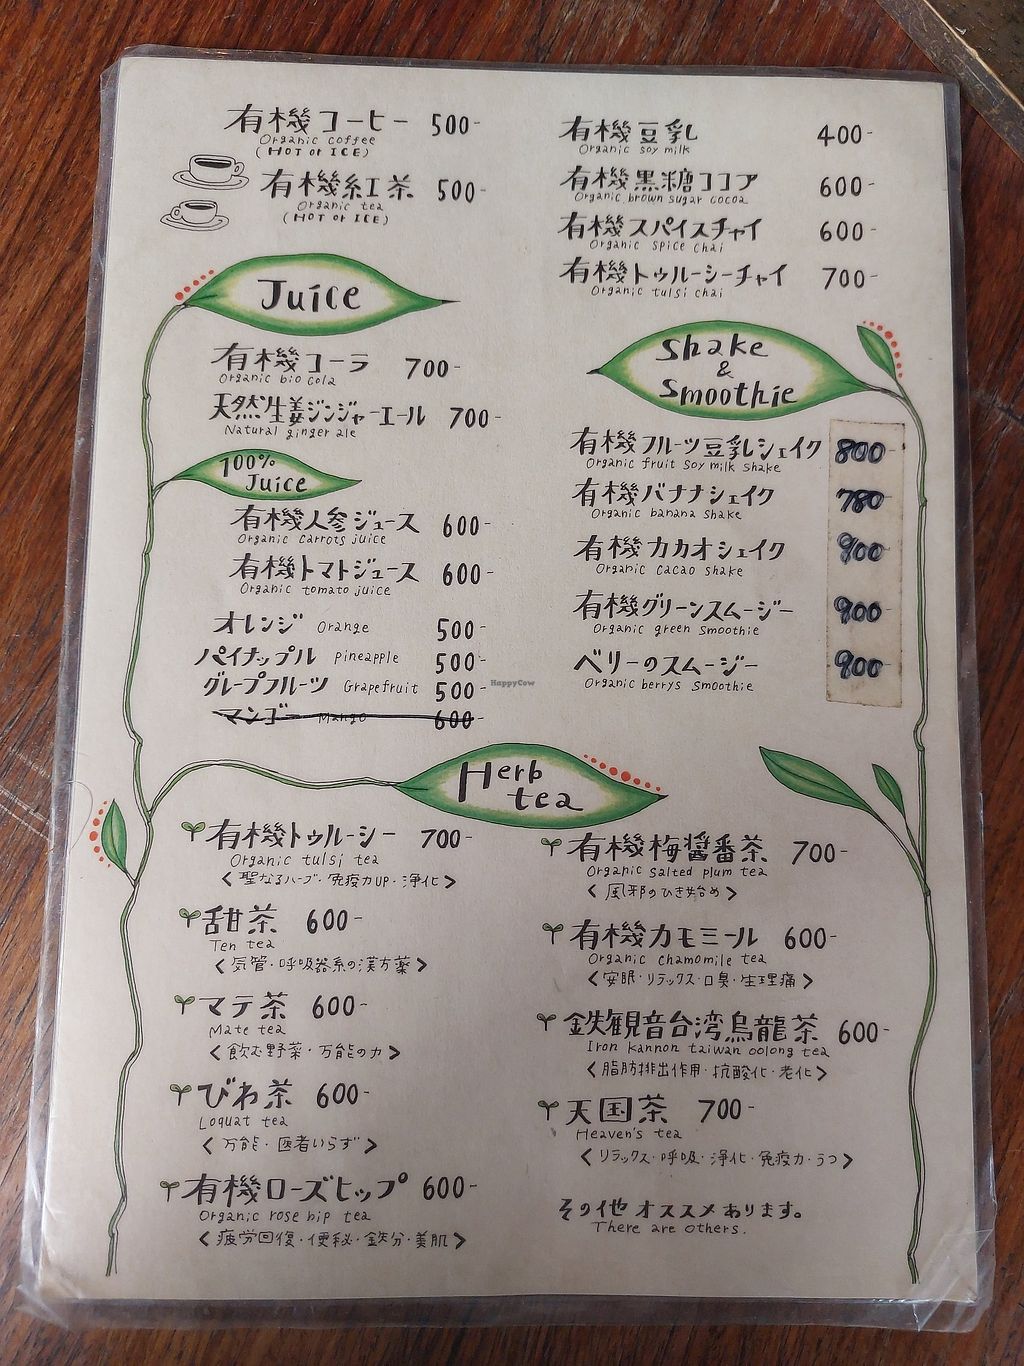 有機コーヒー 500-
Organic coffee
(HOT or ICE)
有機紅茶 500-
Organic tea
(HOT or ICE)
Juice
有機コーラ 700-
Organic bio cola
天然生姜ジンジャーエール 700-
Natural ginger ale
100%
Juice
有機人参ジュース 600-
Organic carrots juice
有機トマトジュース 600-
Organic tomato juice
オレンジ Orange 500-
パイナップル Pineapple 500-
グレープフルーツ Grapefruit 500-
マンゴー Mango 600-
有機豆乳 400-
Organic soy milk
有機黒糖ココア 600-
Organic brown sugar cocoa
有機スパイスチャイ 600-
Organic spice chai
有機トゥルーシーチャイ 700-
Organic tulsi chai
Shake
&
Smoothie
有機フルーツ豆乳シェイク 800
Organic fruit soy milk shake
有機バナナシェイク 780
Organic banana shake
有機カカオシェイク 900
Organic cacao shake
有機グリーンスムージー 900
Organic green smoothie
ベリーのスムージー 900
Organic berrys smoothie
HappyCow
Herb
tea
有機トゥルーシー 700-
Organic tulsi tea
<聖なるハーブ・免疫力UP・浄化>
甜茶 600-
Ten tea
<気管・呼吸器系の漢方薬>
マテ茶 600-
Mate tea
<飲む野菜・万能の力>
びわ茶 600-
Loquat tea
<万能・医者いらず>
有機ローズヒップ 600-
Organic rose hip tea
<疲労回復・便秘・鉄分・美肌>
有機梅醤番茶 700-
Organic salted plum tea
<風邪のひき始め>
有機カモミール 600-
Organic chamomile tea
<安眠・リラックス・口臭・生理痛>
鉄観音台湾烏龍茶 600-
Iron kannon taiwan oolong tea
<脂肪排出作用・抗酸化・老化>
天国茶 700-
Heaven's tea
<リラックス・呼吸・浄化・免疫力・うつ>
その他オススメあります。
There are others.